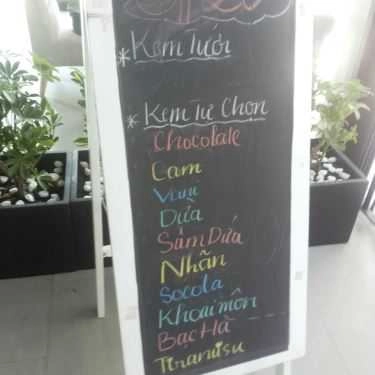 * Kem Tươi
* Kem Tự Chọn
Chocolate
Cam
Vani
Dừa
Sầm Dứa
Nhãn
Socola
Khoai môn
Bạc Hà
Tiramisu